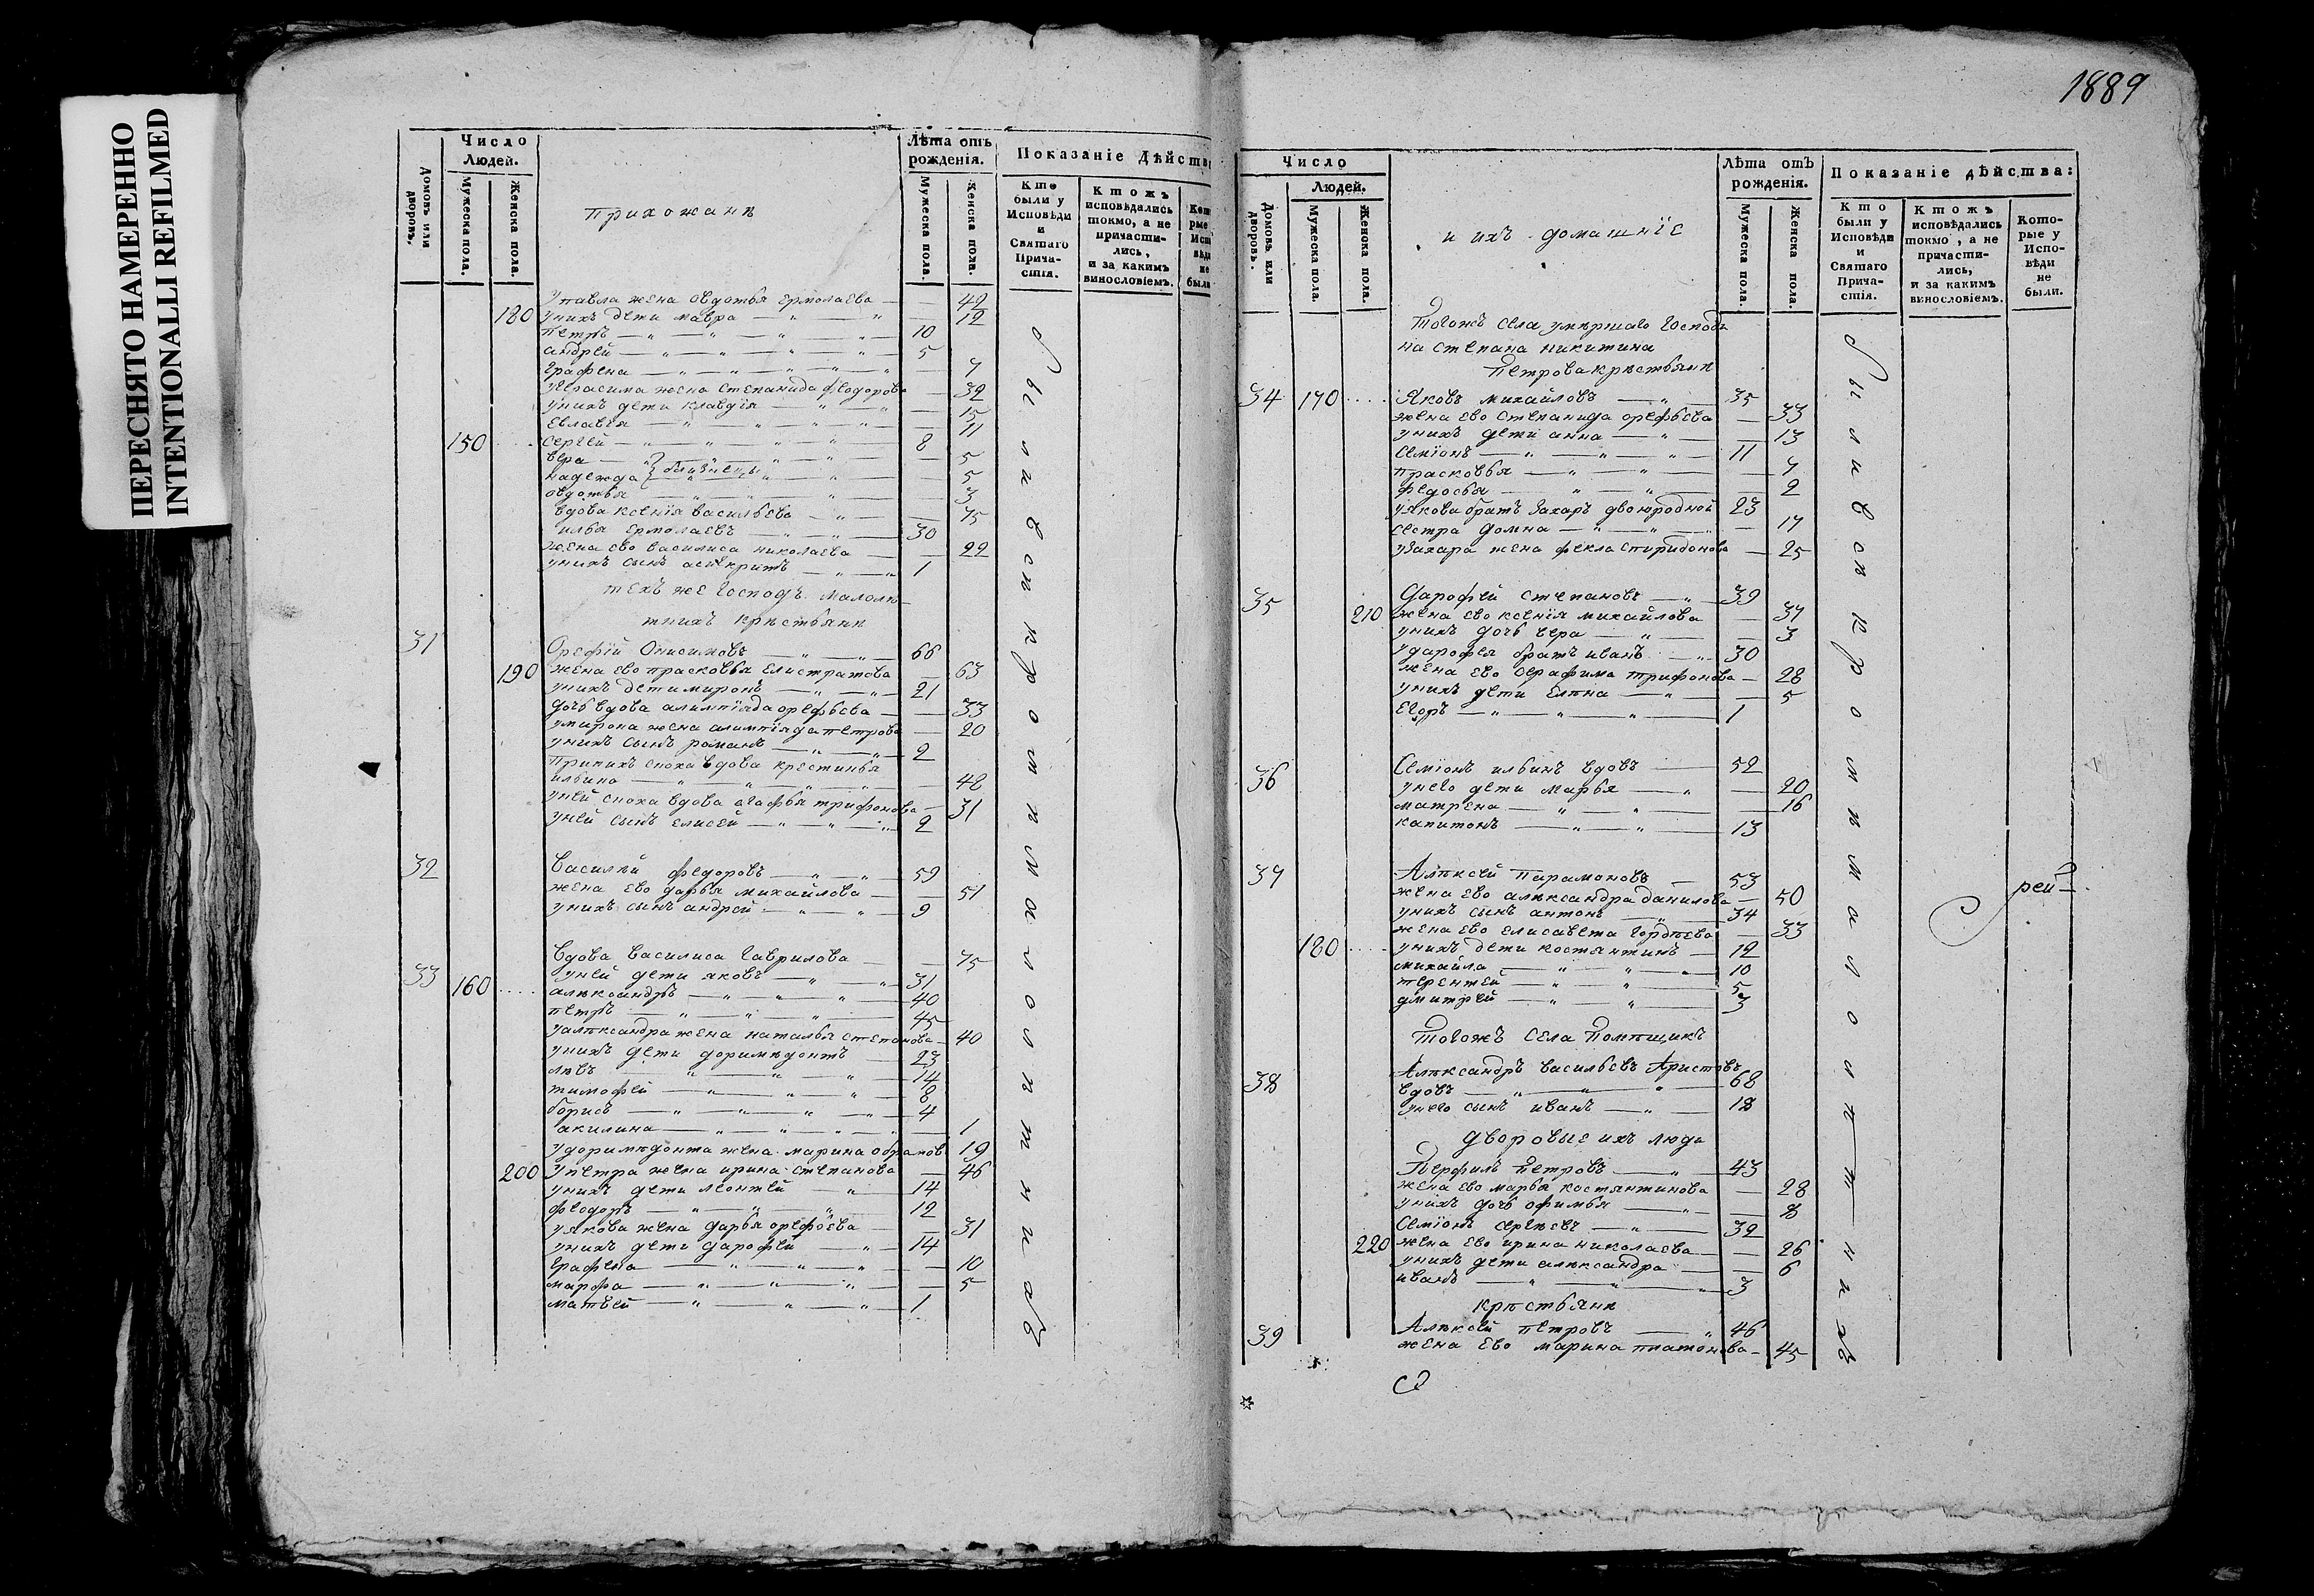 ПЕРЕСНЯТО НАМЕРЕННО
INTENTIONALLI REFILMED
1889
Число
Людей.
Домовъ или дворовъ.
Мужеска пола.
Женска пола.
прихожанѣ
Лѣта отъ
рожденія.
Мужеска пола.
Женска пола.
Показаніе Дѣйств
Кто были у Исповѣди и Святаго Прича-стія.
Ктожъ исповѣдались токмо, а не причасти-лись, и за какимъ винословіемъ.
упавла жена овдотья ермолаева — 42
180 унихъ дети мавра — 12
петръ — 10
андрей — 5
Графена — 7
угерасима жена степанида федорова — 32
унихъ дети клавдїя — 15
Евлавїя — 11
150 сергей — 8
вера — 5
надежда близнецы — 5
овдотья — 3
вдова ксенїя васильева — 75
илья ермолаевъ — 30
жена ево василиса николаева — 22
унихъ сынъ асинкритъ — 1
техъ же господъ малолѣ-
тнихъ крѣстьянѣ
31 Орефїй Онисимовъ — 66
190 жена ево прасковья Елистратова — 63
унихъ дети миронъ — 21
дочь вдова алимпїяда орефьева — 33
умирона жена алимпїяда петрова — 20
унихъ сынъ романъ — 2
принихъ сноха вдова крестинья
ильина — 48
уней сноха вдова агафья трифонова — 31
уней сынъ елисей — 2
32 Василѣй федоровъ — 59
жена ево дарья михайлова — 51
унихъ сынъ андрей — 9
33 Вдова василиса гаврилова — 75
160 уней дети яковъ — 31
алѣксандръ — 40
петръ — 45
уалѣксандра жена наталья степанова — 40
унихъ дети доримѣдонтъ — 23
лѣвъ — 14
тимофей — 8
борисъ — 4
акилина — 1
удоримѣдонта жена марина 19
200 упетра жена ирина степанова — 46
унихъ дети леонтей — 14
федоръ — 12
уякова жена дарья орефьева — 31
унихъ дети дарофей — 14
графена — 10
марфа — 5
матвей — 1
были в сѣкромѣ малолѣтнихъ
Число
Людей.
Домовъ или дворовъ.
Мужеска пола.
Женска пола.
и ихъ домашнїе
Лѣта отъ
рожденія.
Мужеска пола.
Женска пола.
Показаніе дѣйства:
Кто были у Исповѣди и Святаго Прича-стія.
Ктожъ исповѣдались токмо, а не причасти-лись, и за какимъ винословіемъ.
Кото-рые у Испо-вѣди не были.
Тогожъ села умершаго Господи
на степана никитина
Петрова крѣстьянѣ
34 170 Яковъ михайловъ — 35
жена ево степанида орефьева — 33
унихъ дети анна — 13
семїонъ — 11
прасковья — 7
федосья — 2
уякова братъ Захаръ двоюродной 23
сестра домна — 17
уЗахара жена фекла спиридонова — 25
35 Дарофей степановъ — 39
210 жена ево ксенїя михайлова — 37
унихъ дочь вера — 3
ударофея братъ иванъ — 30
жена ево серафима трифонова — 28
унихъ дети Елѣна — 5
Егоръ — 1
36 Семїонъ ильинъ вдовъ — 52
унево дети марья — 20
матрена — 16
капитонъ — 13
37 Алѣксей Парамоновъ — 53
жена ево алѣксандра данилова — 50
унихъ сынъ антонъ — 34
жена ево елисавета гордѣева — 33
180 унихъ дети костянтинъ — 12
михайла — 10
терентей — 5
дмитрей — 3
Тогожъ села Помѣщикъ
38 Алѣксандръ васильевъ Аристовъ
вдовъ — 68
унево сынъ иванъ — 18
дворовые ихъ люди
Перфилъ Петровъ — 43
жена ево марья костянтинова — 28
унихъ дочь офимья — 8
Семїонъ сергѣевъ — 32
220 жена ево ирина николаева — 26
унихъ дети алѣксандра — 6
иванъ — 3
крѣстьянѣ
39 Алѣксей петровъ — 46
жена ево марина платонова — 45
были в сѣкромѣ малолѣтнихъ
рей